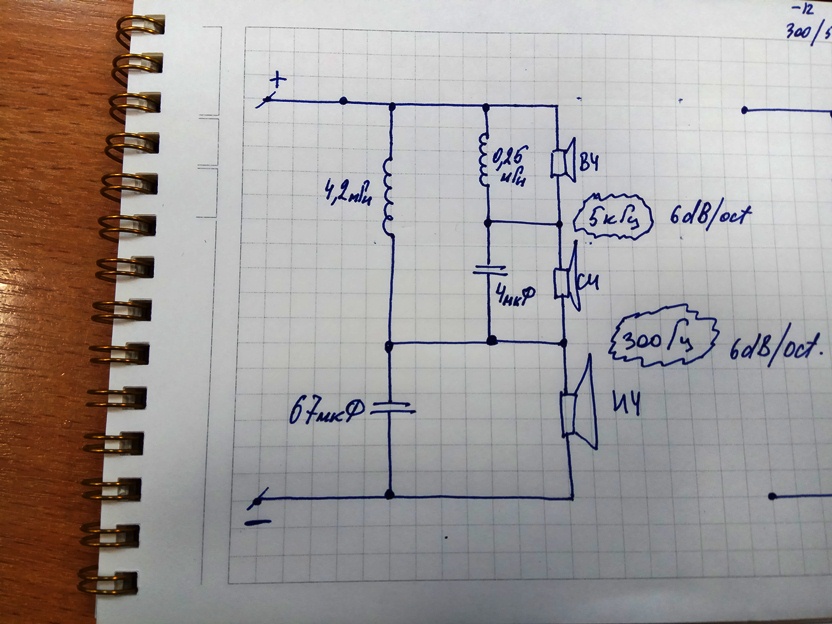 -12
300/5
+
4,2мГн
0,25
мГн
ВЧ
5кГц
6dB/oct
4мкФ
СЧ
300Гц
6dB/oct.
67мкФ
НЧ
−